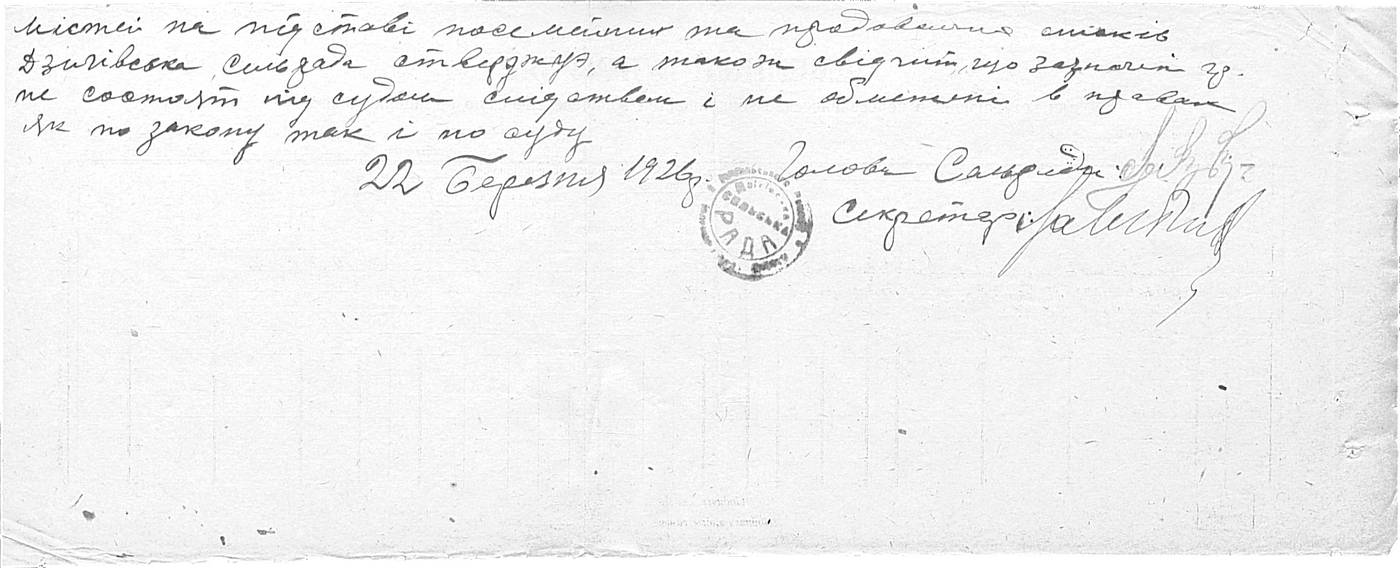 містей на підставі посемейних та продовольчих списків
Дзигівська сельрада стверджує, а також свідчит, що зазначені гр.
не состоят під судом слідством і не обмежені в правах
як по закону так і по суду
22 Березня 1926 р. Голова Сельради
Секретарь
СІЛЬСЬКА
РАДА